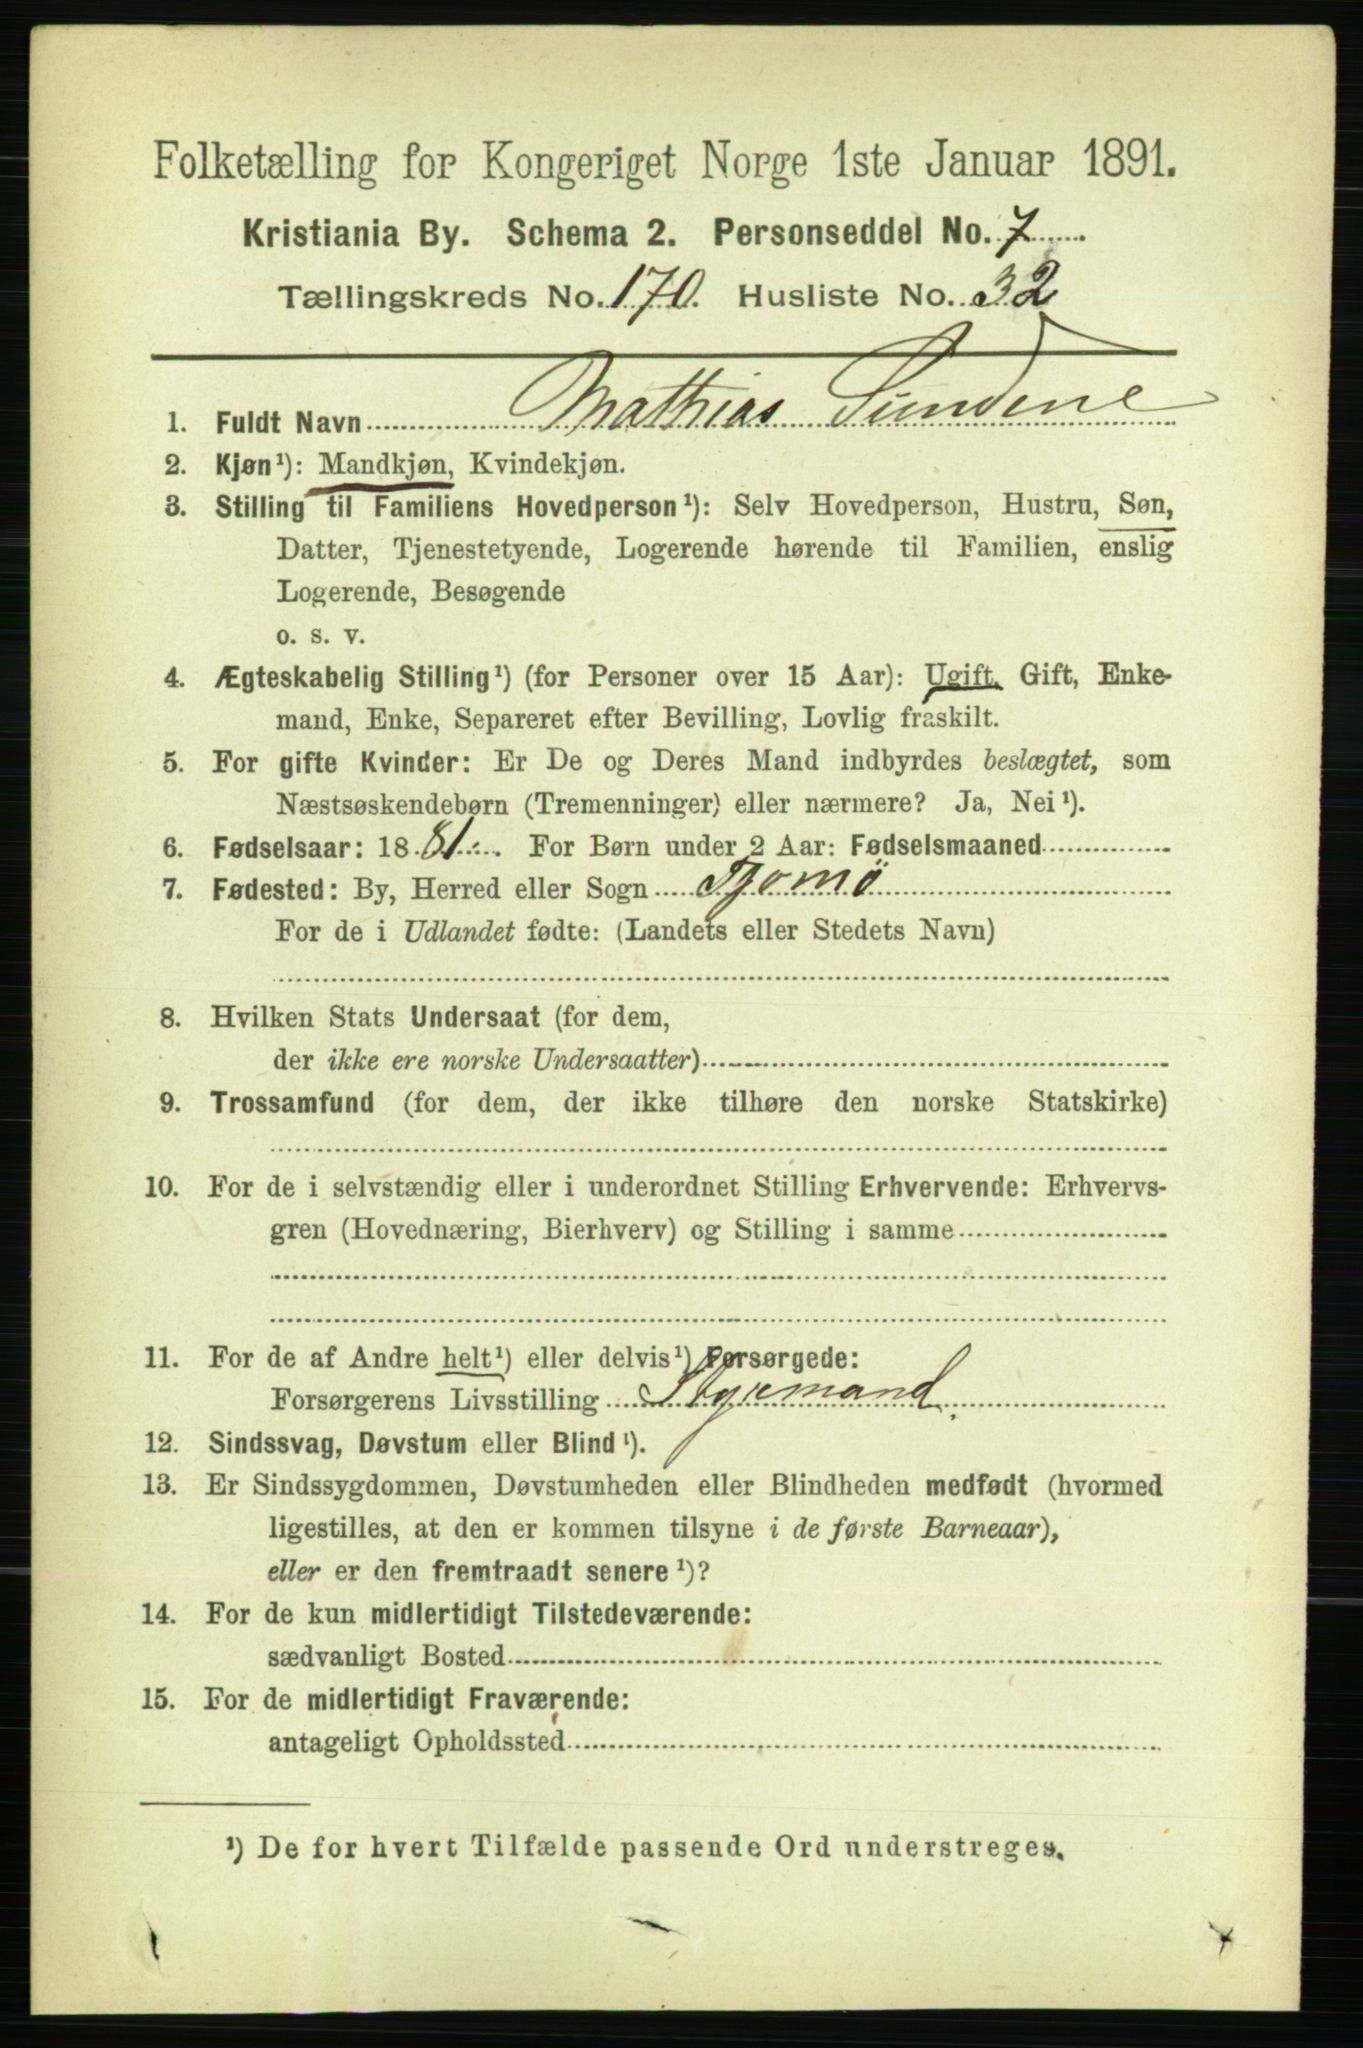 Folketælling for Kongeriget Norge 1ste Januar 1891.
Kristiania By. Schema 2. Personseddel No. 7
Tællingskreds No. 170. Husliste No. 32
1. Fuldt Navn Mathias Sundene
2. Kjøn¹): Mandkjøn, Kvindekjøn.
3. Stilling til Familiens Hovedperson¹): Selv Hovedperson, Hustru, Søn,
Datter, Tjenestetyende, Logerende hørende til Familien, enslig
Logerende, Besøgende
o. s. v.
4. Ægteskabelig Stilling¹) (for Personer over 15 Aar): Ugift, Gift, Enke-
mand, Enke, Separeret efter Bevilling, Lovlig fraskilt.
5. For gifte Kvinder: Er De og Deres Mand indbyrdes beslægtet, som
Næstsøskendebørn (Tremenninger) eller nærmere? Ja, Nei¹).
6. Fødselsaar: 1881. For Børn under 2 Aar: Fødselsmaaned
7. Fødested: By, Herred eller Sogn Tjømø
For de i Udlandet fødte: (Landets eller Stedets Navn)
8. Hvilken Stats Undersaat (for dem,
der ikke ere norske Undersaatter)
9. Trossamfund (for dem, der ikke tilhøre den norske Statskirke)
10. For de i selvstændig eller i underordnet Stilling Erhvervende: Erhvervs-
gren (Hovednæring, Bierhverv) og Stilling i samme
11. For de af Andre helt¹) eller delvis¹) Forsørgede:
Forsørgerens Livsstilling Styrmand.
12. Sindssvag, Døvstum eller Blind¹).
13. Er Sindssygdommen, Døvstumheden eller Blindheden medfødt (hvormed
ligestilles, at den er kommen tilsyne i de første Barneaar),
eller er den fremtraadt senere¹)?
14. For de kun midlertidigt Tilstedeværende:
sædvanligt Bosted
15. For de midlertidigt Fraværende:
antageligt Opholdssted
¹) De for hvert Tilfælde passende Ord understreges.